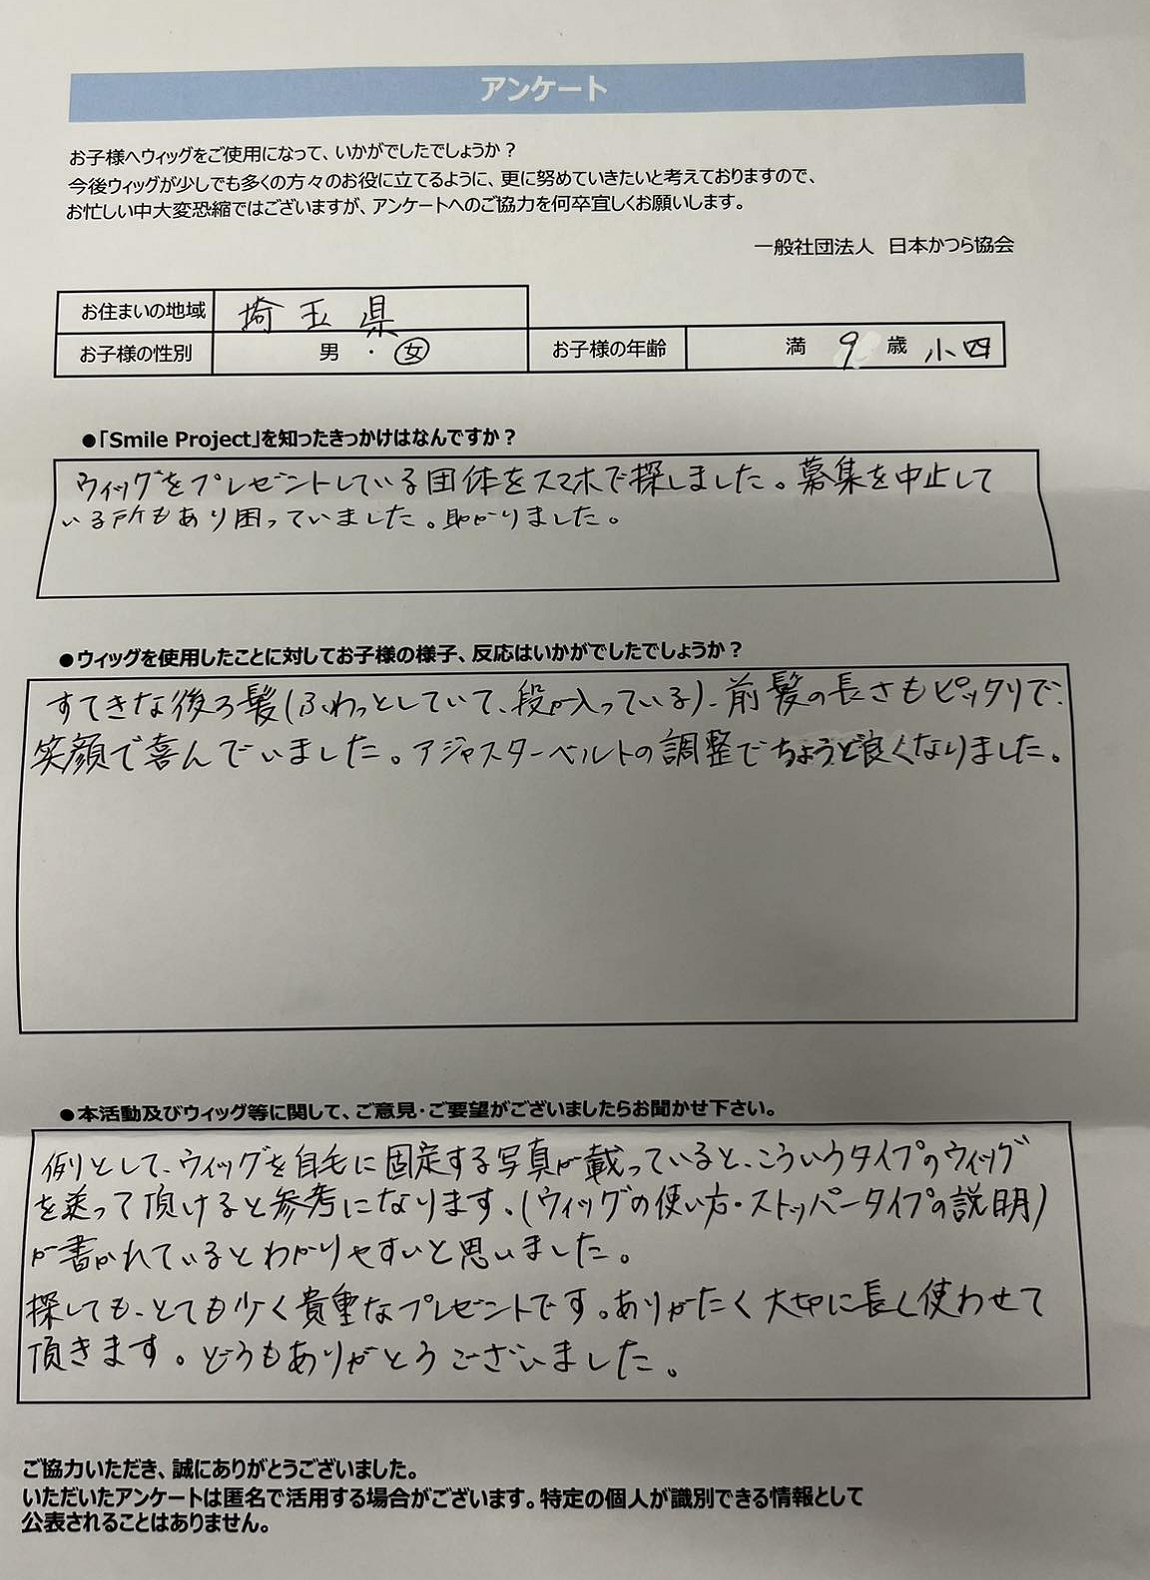 アンケート
お子様へウィッグをご使用になって、いかがでしたでしょうか？
今後ウィッグが少しでも多くの方々のお役に立てるように、更に努めていきたいと考えておりますので、
お忙しい中大変恐縮ではございますが、アンケートへのご協力を何卒宜しくお願いします。
一般社団法人 日本かつら協会
お住まいの地域 埼玉県
お子様の性別 男 ・ 女 お子様の年齢 満 9 歳 小四
●「Smile Project」を知ったきっかけはなんですか？
ウィッグをプレゼントしている団体をスマホで探しました。募集を中止して
いる所もあり困っていました。助かりました。
●ウィッグを使用したことに対してお子様の様子、反応はいかがでしたでしょうか？
すてきな後ろ髪(ふわっとしていて、段が入っている)、前髪の長さもピッタリで、
笑顔で喜んでいました。アジャスターベルトの調整でちょうど良くなりました。
●本活動及びウィッグ等に関して、ご意見・ご要望がございましたらお聞かせ下さい。
例として、ウィッグを自毛に固定する写真が載っていると、こういうタイプのウィッグ
を送って頂けると参考になります、(ウィッグの使い方・ストッパータイプの説明)
が書かれているとわかりやすいと思いました。
探しても、とても少く貴重なプレゼントです。ありがたく大切に長く使わせて
頂きます。どうもありがとうございました。
ご協力いただき、誠にありがとうございました。
いただいたアンケートは匿名で活用する場合がございます。特定の個人が識別できる情報として
公表されることはありません。